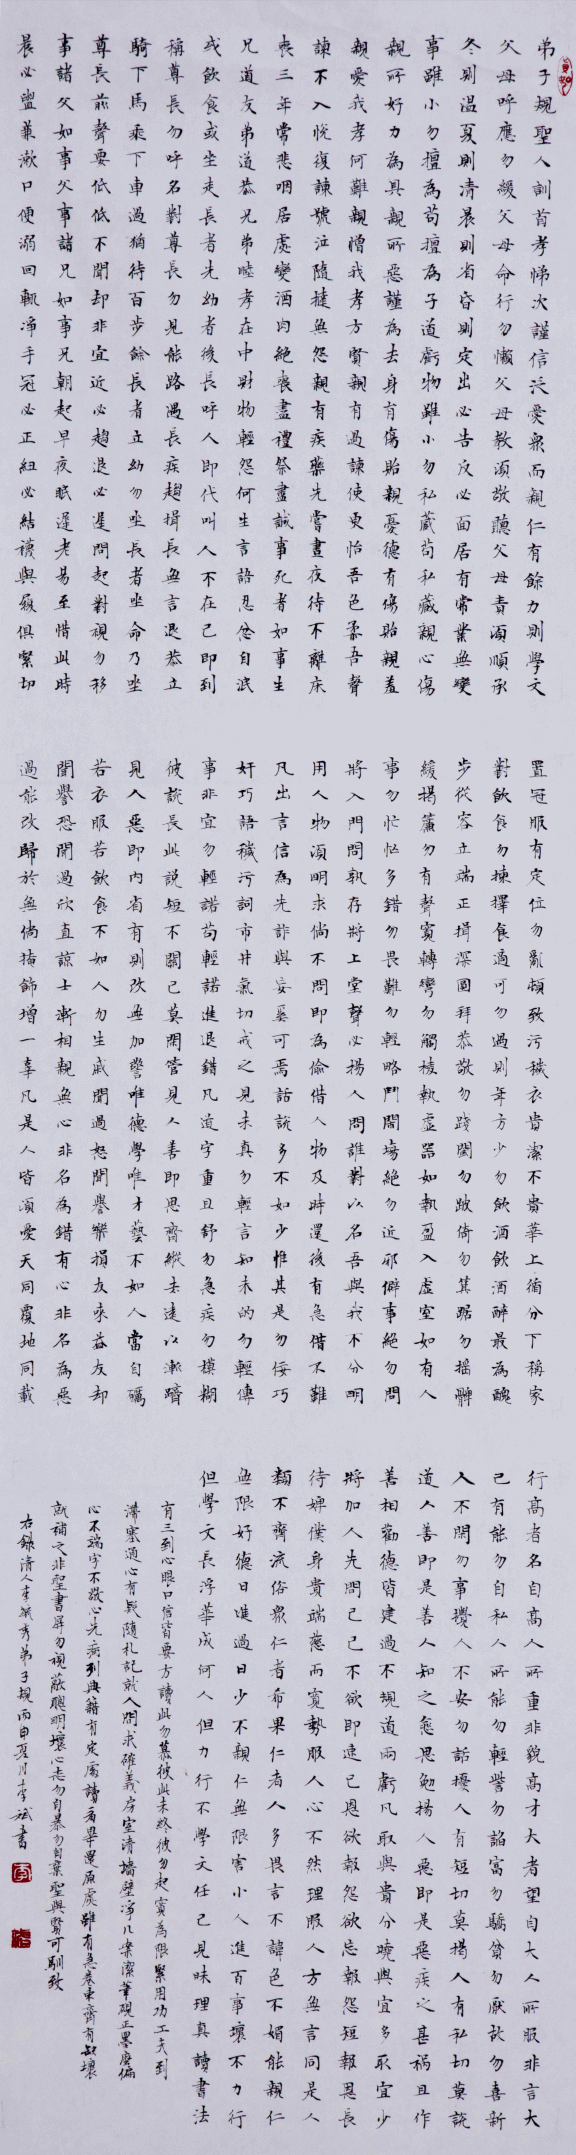 弟子規聖人訓首孝悌次謹信汎愛眾而親仁有餘力則學文
父母呼應勿緩父母命行勿懶父母教須敬聽父母責須順承
冬則溫夏則清晨則省昏則定出必告反必面居有常業無變
事雖小勿擅為苟擅為子道虧物雖小勿私藏苟私藏親心傷
親所好力為具親所惡謹為去身有傷貽親憂德有傷貽親羞
親愛我孝何難親憎我孝方賢親有過諫使更怡吾色柔吾聲
諫不入悅復諫號泣隨撻無怨親有疾藥先嘗晝夜待不離床
喪三年常悲咽居處變酒肉絕喪盡禮祭盡誠事死者如事生
兄道友弟道恭兄弟睦孝在中財物輕怨何生言語忍忿自泯
或飲食或坐走長者先幼者後長呼人即代叫人不在己即到
稱尊長勿呼名對尊長勿見能路遇長疾趨揖長無言退恭立
騎下馬乘下車過猶待百步餘長者立幼勿坐長者坐命乃坐
尊長前聲要低低不聞却非宜近必趨退必遲問起對視勿移
事諸父如事父事諸兄如事兄朝起早夜眠遲老易至惜此時
晨必盥兼漱口便溺回輒淨手冠必正紐必結襪與履俱緊切
置冠服有定位勿亂頓致污穢衣貴潔不貴華上循分下稱家
對飲食勿揀擇食適可勿過則年方少勿飲酒飲酒醉最為醜
步從容立端正揖深圓拜恭敬勿踐閾勿跛倚勿箕踞勿搖髀
緩揭簾勿有聲寬轉彎勿觸棱執虛器如執盈入虛室如有人
事勿忙忙多錯勿畏難勿輕略鬥鬧場絕勿近邪僻事絕勿問
將入門問孰存將上堂聲必揚人問誰對以名吾與我不分明
用人物須明求倘不問即為偷借人物及時還後有急借不難
凡出言信為先詐與妄奚可焉話說多不如少惟其是勿佞巧
奸巧語穢污詞市井氣切戒之見未真勿輕言知未的勿輕傳
事非宜勿輕諾苟輕諾進退錯凡道字重且舒勿急疾勿模糊
彼說長此說短不關己莫閑管見人善即思齊縱去遠以漸躋
見人惡即內省有則改無加警唯德學唯才藝不如人當自礪
若衣服若飲食不如人勿生戚聞過怒聞譽樂損友來益友却
聞譽恐聞過欣直諒士漸相親無心非名為錯有心非名為惡
過能改歸於無倘掩飾增一辜凡是人皆須愛天同覆地同載
行高者名自高人所重非貌高才大者望自大人所服非言大
己有能勿自私人所能勿輕訾勿諂富勿驕貧勿厭故勿喜新
人不閑勿事攪人不安勿話擾人有短切莫揭人有私切莫說
道人善即是善人知之愈思勉揚人惡即是惡疾之甚禍且作
善相勸德皆建過不規道兩虧凡取與貴分曉與宜多取宜少
將加人先問己己不欲即速已恩欲報怨欲忘報怨短報恩長
待婢僕身貴端慈而寬勢服人心不然理服人方無言同是人
類不齊流俗眾仁者希果仁者人多畏言不諱色不媚能親仁
無限好德日進過日少不親仁無限害小人進百事壞不力行
但學文長浮華成何人但力行不學文任己見昧理真讀書法
有三到心眼口信皆要方讀此勿慕彼此未終彼勿起寬為限緊用功工夫到
滯塞通心有疑隨札記就人問求確義房室清牆壁淨几案潔筆硯正墨磨偏
心不端字不敬心先病列典籍有定處讀看畢還原處雖有急卷束齊有缺壞
就補之非聖書屏勿視蔽聰明壞心志勿自暴勿自棄聖與賢可馴致
右錄清人李毓秀弟子規丙申夏月李斌書